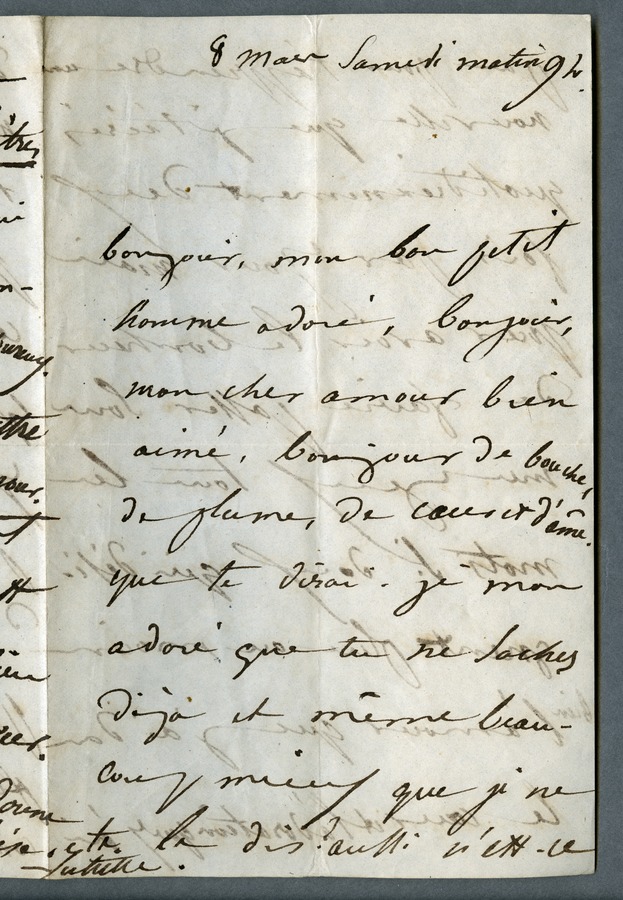 8 mars Samedi matin 9 h.
bonjour, mon bon petit
homme adoré, bonjour,
mon cher amour bien
aimé, bonjour de bouche,
de plume, de cœur et d'âme.
que te dirai-je mon
adoré que tu ne saches
déjà et même beau-
coup mieux que je ne
le dis. aussi n'est-ce